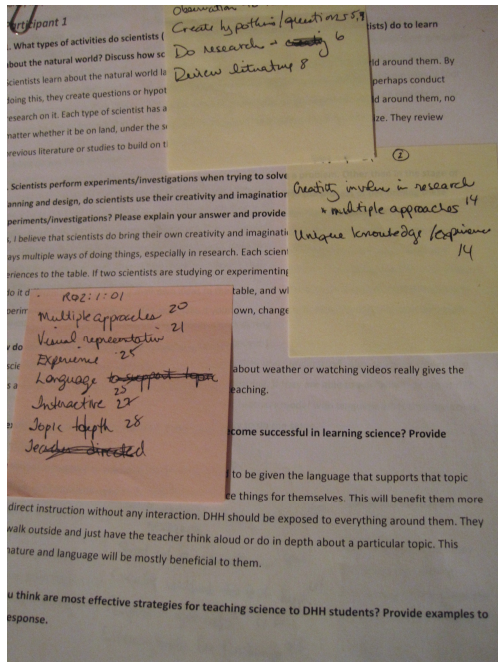 Participant 1
. What types of activities do scientists (
ists) do to learn
about the natural world? Discuss how sc
scientists learn about the natural world la
ld around them. By
doing this, they create questions or hypot
perhaps conduct
research on it. Each type of scientist has a
ld around them, no
matter whether it be on land, under the s
ize. They review
previous literature or studies to build on t
Observation
Create hypothesis/questions 5,9
Do research 6
Review literature 8
. Scientists perform experiments/investigations when trying to solve
anning and design, do scientists use their creativity and imagination
periments/investigations? Please explain your answer and provide
s, I believe that scientists do bring their own creativity and imaginati
ays multiple ways of doing things, especially in research. Each scien
eriences to the table. If two scientists are studying or experimenting
do it d
table, and wi
perim
own, change
2
Creativity involve in research
multiple approaches 14
Unique knowledge/experience
14
RQ2:1:01
Multiple approaches 20
Visual representation 21
Experience 25
Language to support topic
25
Interactive 27
Topic depth 28
Teacher directed
w do
scie
about weather or watching videos really gives the
s a
eaching.
come successful in learning science? Provide
to be given the language that supports that topic
ce things for themselves. This will benefit them more
direct instruction without any interaction. DHH should be exposed to everything around them. They
walk outside and just have the teacher think aloud or do in depth about a particular topic. This
nature and language will be mostly beneficial to them.
u think are most effective strategies for teaching science to DHH students? Provide examples to
esponse.